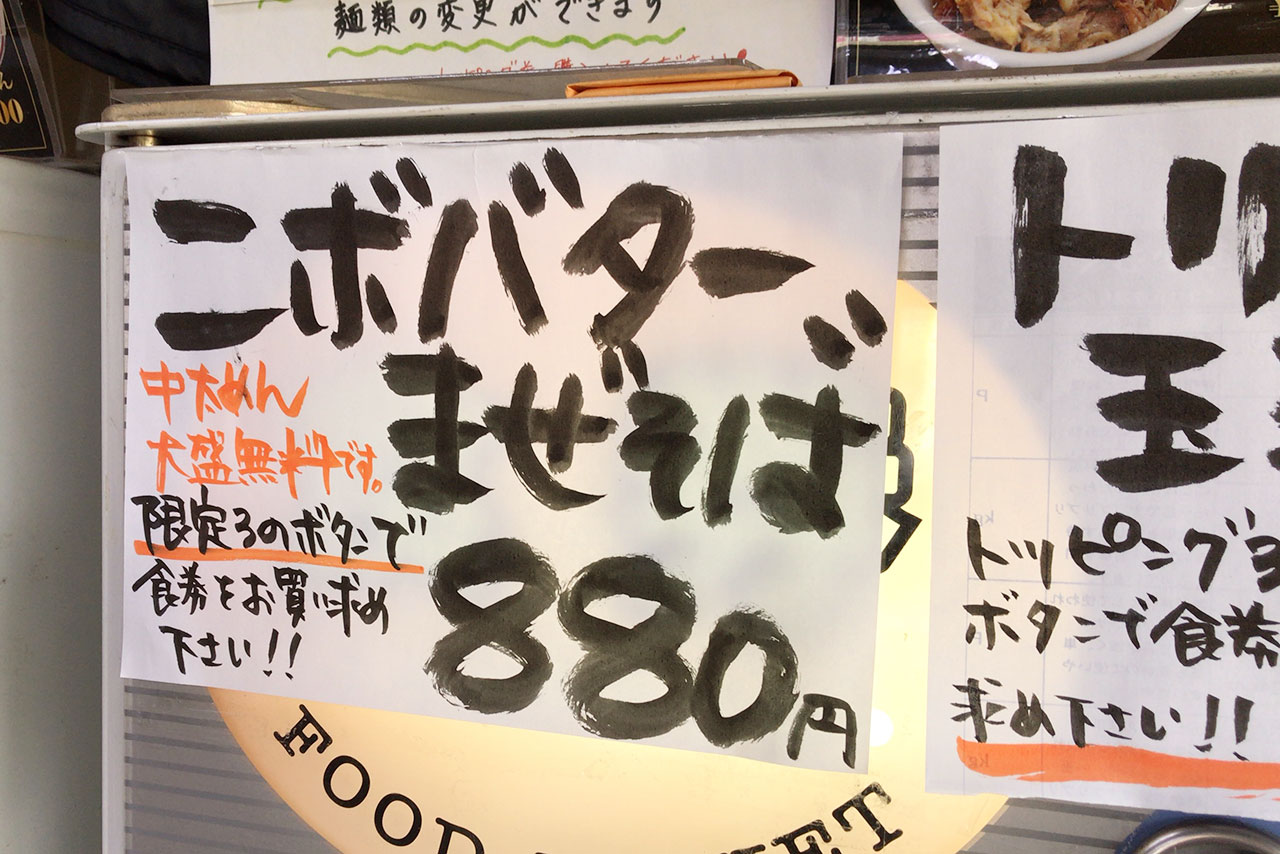 麺類の変更ができます
00
ニボバター
まぜそば
中太めん
大盛無料です。
限定3のボタンで
食券をお買い求め
下さい!!
880円
FOOD
トッピング3
ボタンで食券
求め下さい!!